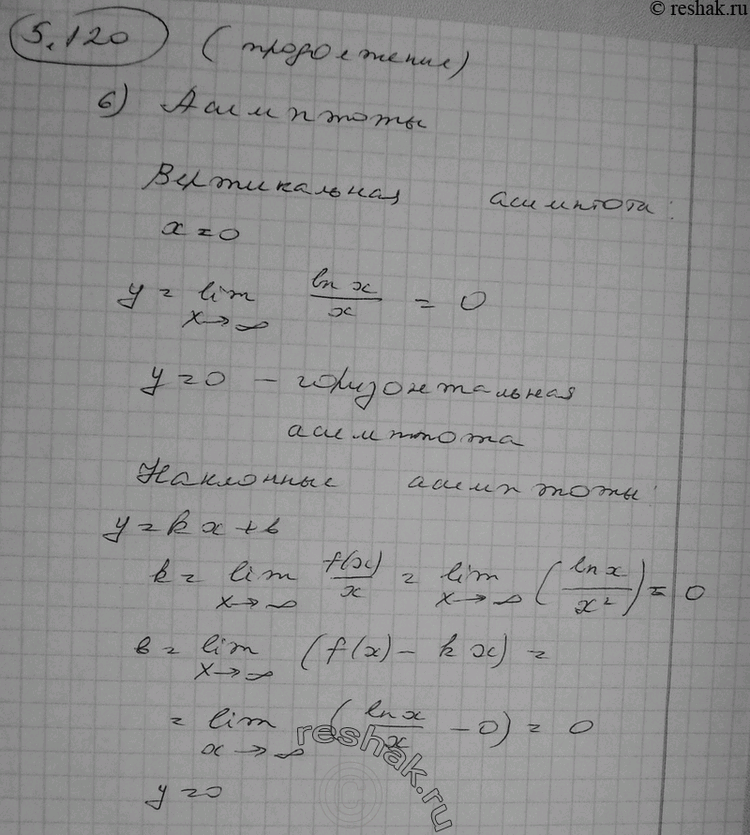 © reshak.ru
5.120 (продолжение)
6) Асимптоты
Вертикальная асимптота:
x=0
y = lim x→∞ ln x / x = 0
y=0 – горизонтальная
асимптота
Наклонные асимптоты:
y=kx+в
k = lim x→∞ f(x)/x = lim x→∞ (ln x / x²) = 0
в = lim x→∞ (f(x) – kx) =
= lim x→∞ (ln x / x – 0) = 0
y=0
reshak.ru